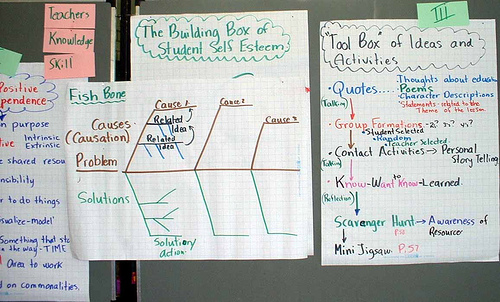 Teachers
Knowledge
Skill
Positive
pendence
n purpose
Intrinsic
ive Extrinsic
e shared resou
nsibility
r to do things
sualize-model'
Something that sta
n the way-TIME
Area to work
d on commonalities.
The Building Box of
Student Self Esteem
Fish Bone
Causes
(Causation)
Problem
Cause 1
Related
Idea
Related
Idea
Cause 2
Cause 3
Solutions
Solution/
action
III
"Tool Box" of Ideas and
Activities
·Quotes.... ·Thoughts about educa
·Poems
·Character Descriptions
·Statements related to the
Theme of the lesson.
(Talk-in)
·Group Formations -2? 3? 4?
·Student Selected
·Random
·Teacher Selected
·Contact Activities → Personal
Story Telling
(Talk-in)
Know-Want to Know-Learned.
(Reflection)
Scavenger Hunt → Awareness of
Resource
Mini Jigsaw P.57